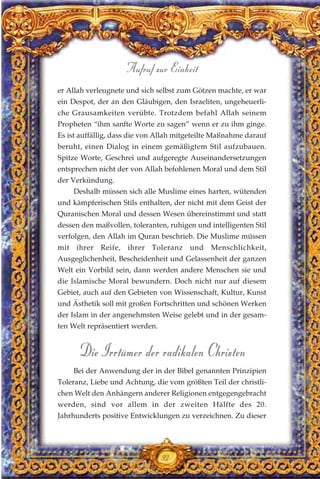 Aufruf zur Einheit
er Allah verleugnete und sich selbst zum Götzen machte, er war
ein Despot, der an den Gläubigen, den Israeliten, ungeheuerli-
che Grausamkeiten verübte. Trotzdem befahl Allah seinem
Propheten "ihm sanfte Worte zu sagen" wenn er zu ihm ginge.
Es ist auffällig, dass die von Allah mitgeteilte Maßnahme darauf
beruht, einen Dialog in einem gemäßigtem Stil aufzubauen.
Spitze Worte, Geschrei und aufgeregte Auseinandersetzungen
entsprechen nicht der von Allah befohlenen Moral und dem Stil
der Verkündung.
Deshalb müssen sich alle Muslime eines harten, wütenden
und kämpferischen Stils enthalten, der nicht mit dem Geist der
Quranischen Moral und dessen Wesen übereinstimmt und statt
dessen den maßvollen, toleranten, ruhigen und intelligenten Stil
verfolgen, den Allah im Quran beschrieb. Die Muslime müssen
mit ihrer Reife, ihrer Toleranz und Menschlichkeit,
Ausgeglichenheit, Bescheidenheit und Gelassenheit der ganzen
Welt ein Vorbild sein, dann werden andere Menschen sie und
die Islamische Moral bewundern. Doch nicht nur auf diesem
Gebiet, auch auf den Gebieten von Wissenschaft, Kultur, Kunst
und Ästhetik soll mit großen Fortschritten und schönen Werken
der Islam in der angenehmsten Weise gelebt und in der gesam-
ten Welt repräsentiert werden.
Die Irrtümer der radikalen Christen
Bei der Anwendung der in der Bibel genannten Prinzipien
Toleranz, Liebe und Achtung, die vom größten Teil der christli-
chen Welt den Anhängern anderer Religionen entgegengebracht
werden, sind vor allem in der zweiten Hälfte des 20.
Jahrhunderts positive Entwicklungen zu verzeichnen. Zu dieser